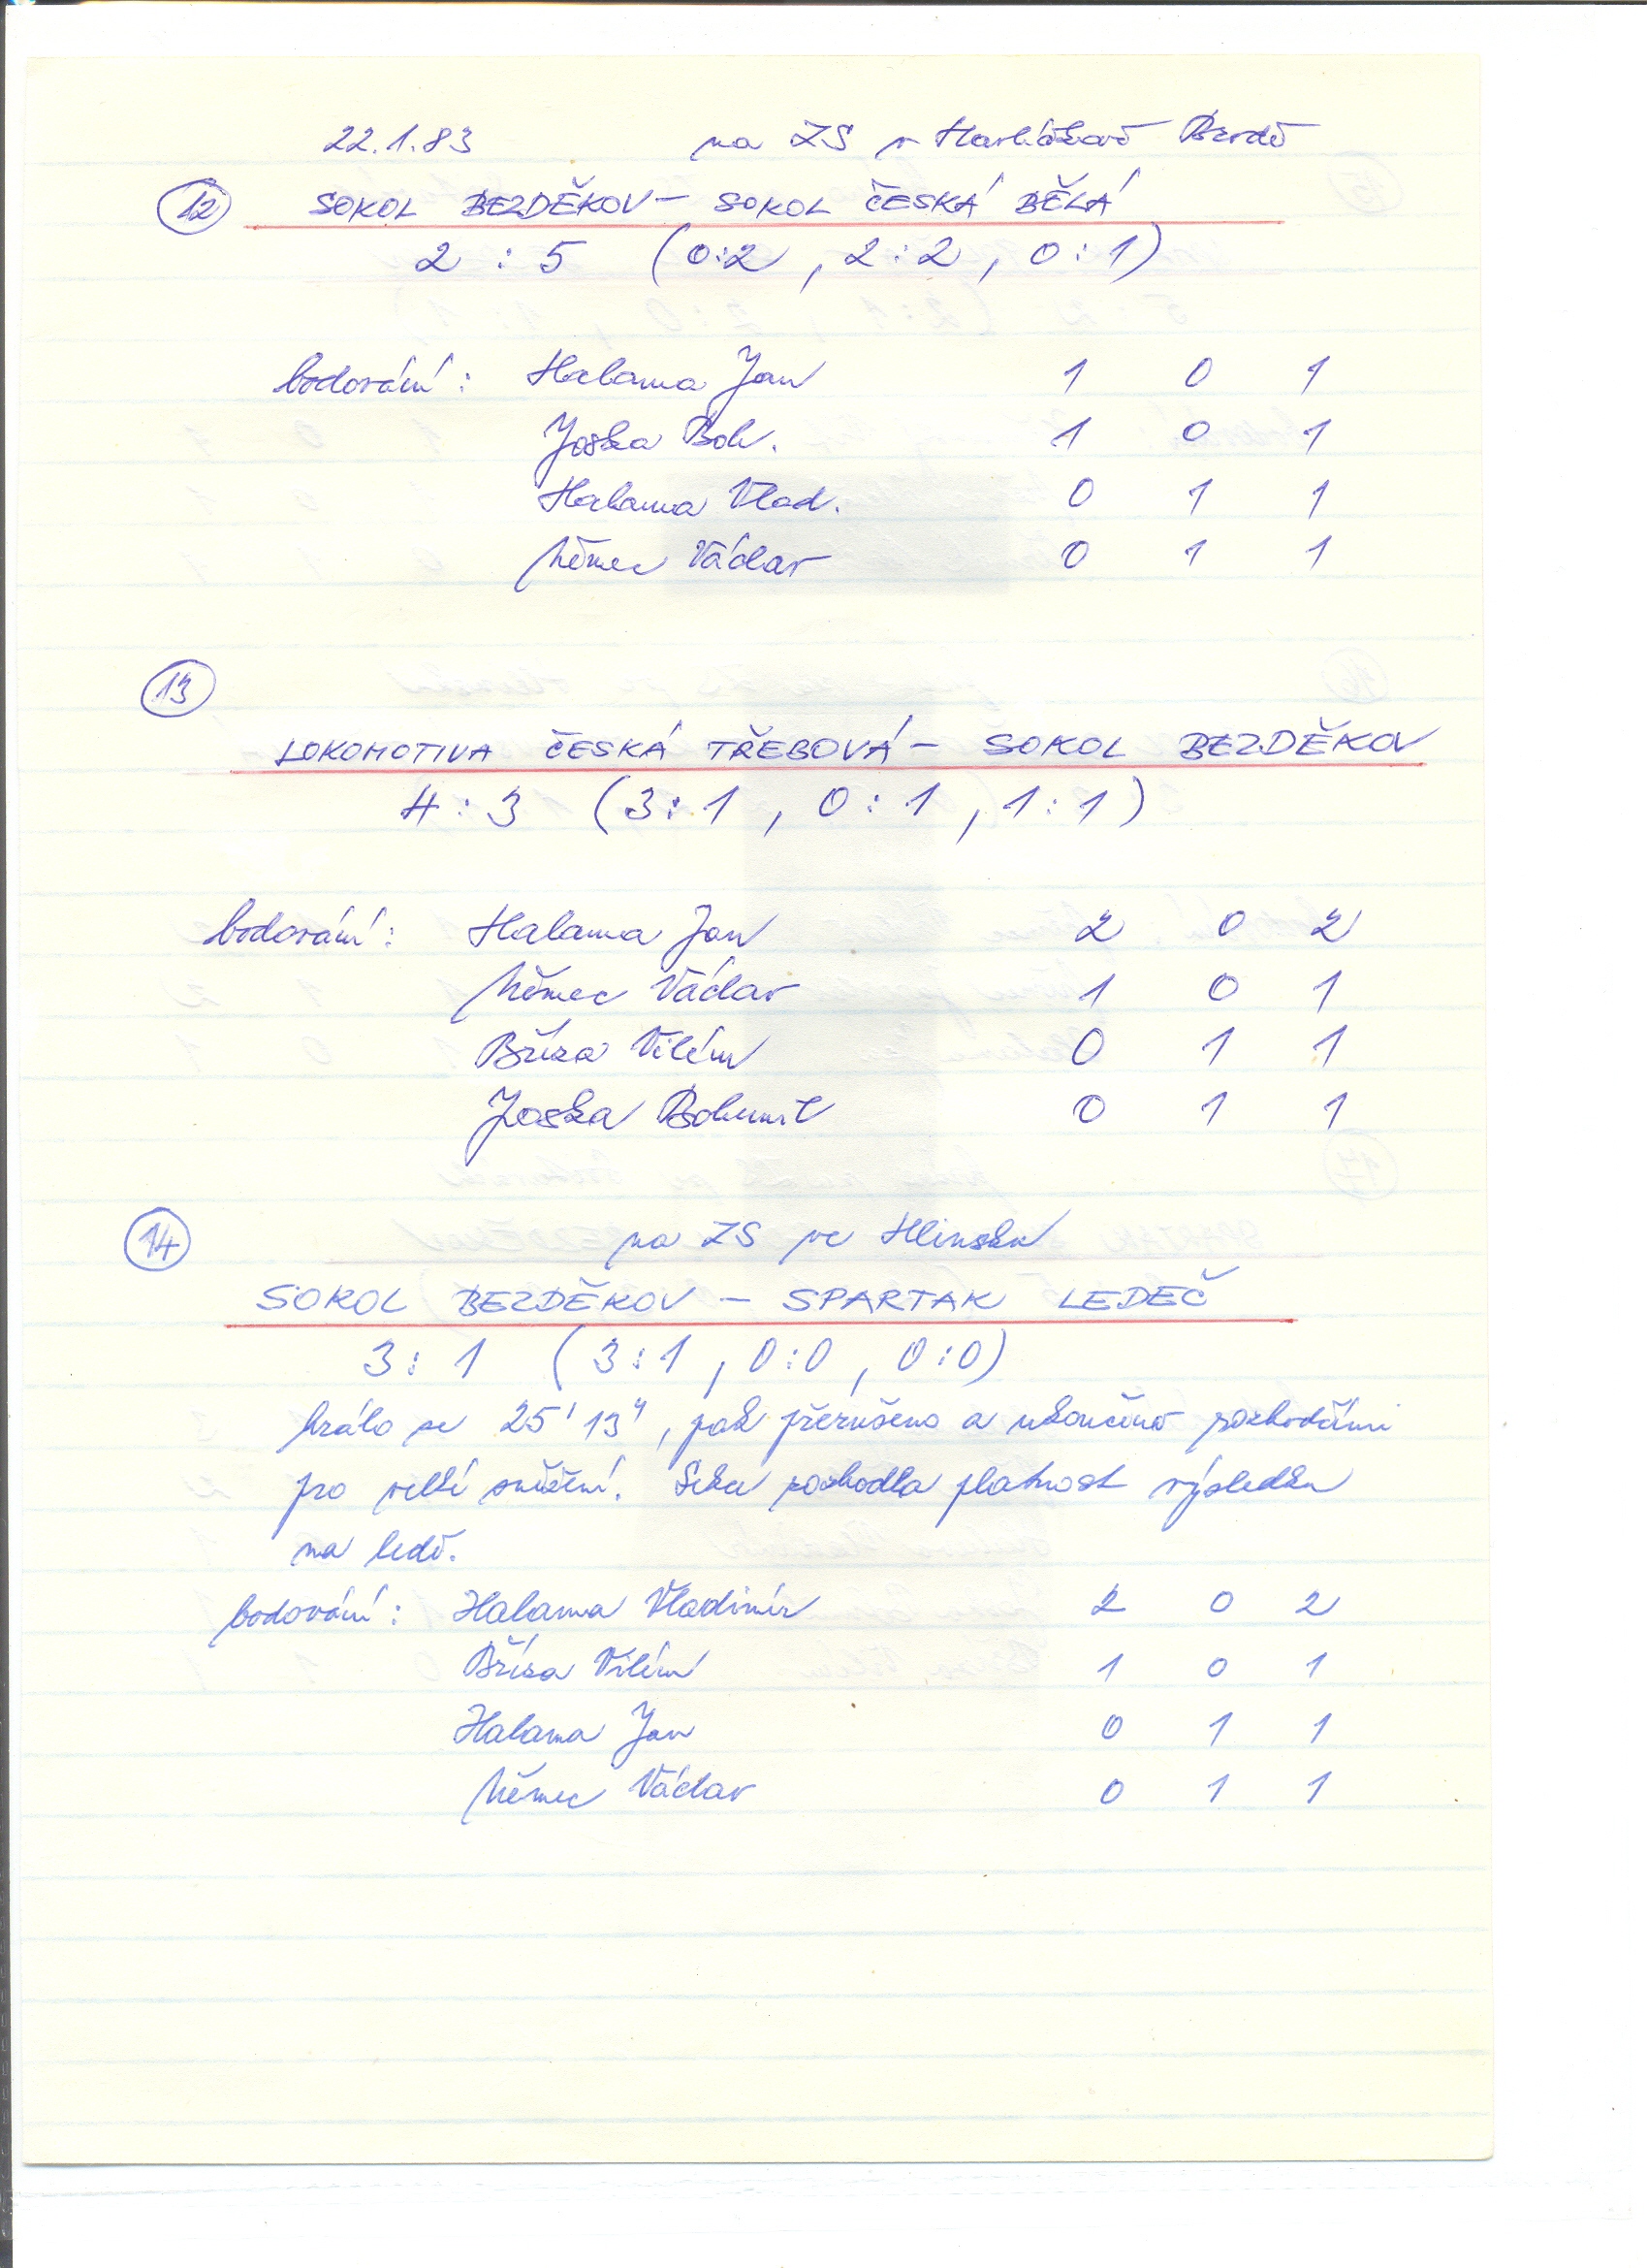 22.1.83 na ZS v Havlíčkově Brodě
12 SOKOL BEZDĚKOV - SOKOL ČESKÁ BĚLÁ
2 : 5 (0:2 , 2:2 , 0:1)
bodování : Halama Jan 1 0 1
Joska Boh. 1 0 1
Halama Vlad. 0 1 1
Němec Václav 0 1 1
13
LOKOMOTIVA ČESKÁ TŘEBOVÁ - SOKOL BEZDĚKOV
4 : 3 (3:1 , 0:1 , 1:1)
bodování : Halama Jan 2 0 2
Němec Václav 1 0 1
Bříza Vilém 0 1 1
Joska Bohumil 0 1 1
14 na ZS ve Hlinsku
SOKOL BEZDĚKOV - SPARTAK LEDEČ
3 : 1 (3:1 , 0:0 , 0:0)
hrálo se 25' 13" , pak přerušeno a ukončeno rozhodčími
pro velké sněžení. Sekce rozhodla platnost výsledku
na ledě.
bodování : Halama Vladimír 2 0 2
Bříza Vilém 1 0 1
Halama Jan 0 1 1
Němec Václav 0 1 1